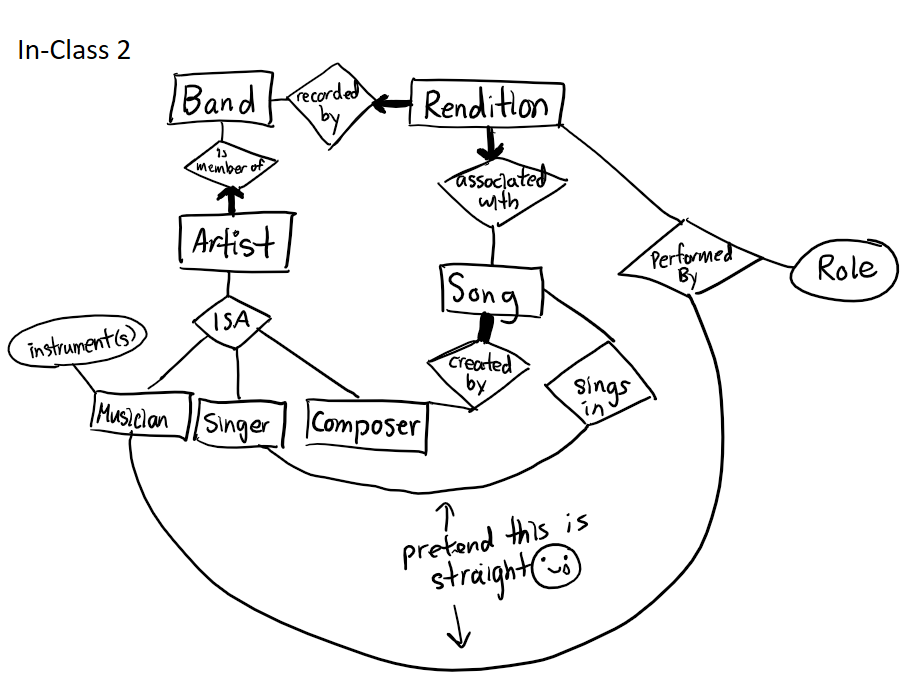 In-Class 2
Band
recorded
by
Rendition
is
member of
associated
with
Artist
Performed
By
Role
Song
ISA
instrument(s)
created
by
sings
in
Musician
Singer
Composer
pretend this is
straight